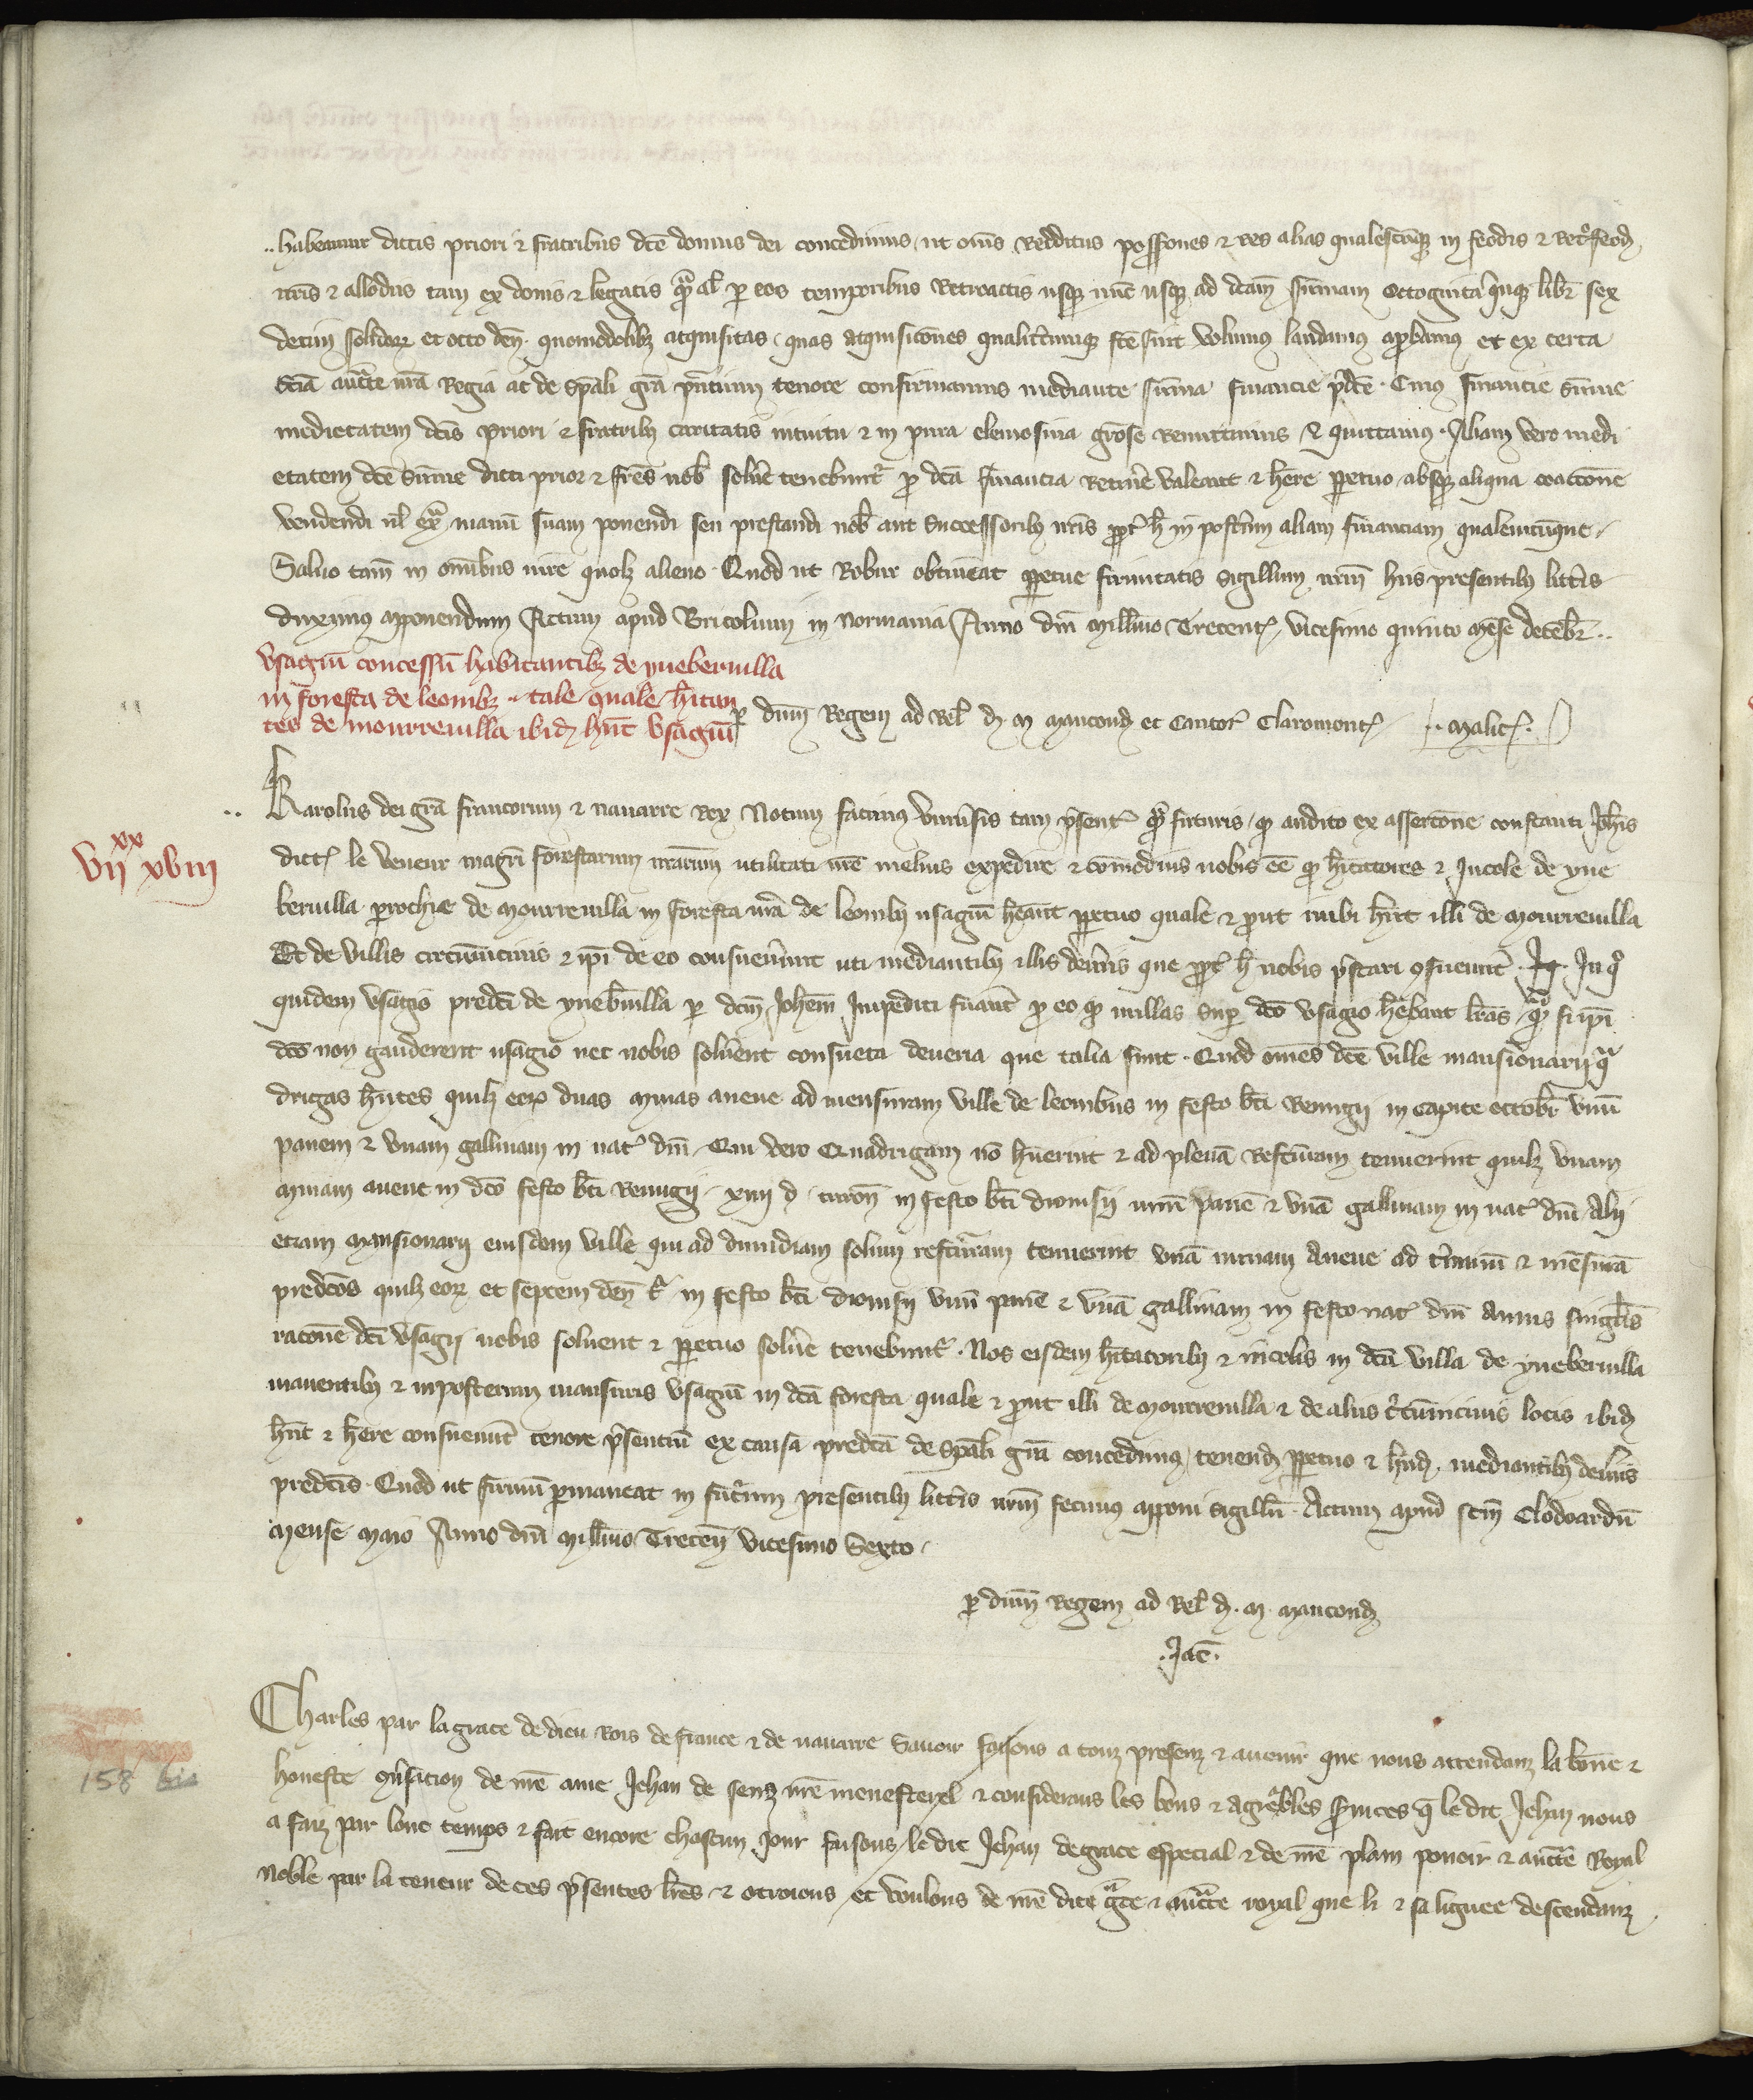 ..habeamur dictis priori & fratribus dce domus dei concedimus, ut oms Redditus possones & Res alias qualescumque in feodis & Retrofeod
nris & allodiis tam ex donis & legatis qua al per eos temporibus Retroactis usque nunc usque ad dcam summam octoginta quinque libr sex
decim solidor et octo den. quomodolibz acquisitas, quas acquisicones qualitcumque fce sint volumus laudamus approbamus et ex certa
scia auctte nra Regia ac de spali gra pntium tenore confirmamus mediante summa financie pdce. Cuius financie summe
medietatem dcis priori & fratribz caritatis intuitu & in pura elemosina grose Remittimus & quittamus. Aliam vero medi
etatem dce summe dicti prior & fres nob solvere tenebuntr pro dca financia Retinere valeant & here perpetuo absque aliqua coactone
vendendi vel extra manum suam ponendi seu prestandi nob aut Successoribz nris propter h in posterum aliam financiam qualemcumque.
Salvo tam in omibus iure quolz alieno. Quod ut Robur obtineat perpetue firmitatis Sigillum nrm hiis presentibz littis
duximus apponendum Actum apud Bricolium in Normania Anno dni Millimo Trecent. vicesimo quinto mense decebr..
Usagiu concessu habitantibz de ynebervilla
in foresta de leonibz .. tale quale hitan
tes de mourrevilla ibid hnt Usagiu
per dnm Regem ad Rel d. M. Mancond et Cantor Claromont .. Malic.
Karolus dei gra francorum & navarre Rex Notum facimus Universis tam psentibus qua futuris, quod audito ex assercone constanti Johis
dict le Veneur magri forestarum nrarum utilitati nre melius expedire & comodius nobis ee quod hitatores & Incole de yne
bervilla prochie de Mourrevilla in foresta nra de leonibz usagiu heant perpetuo quale & prout inibi hnt illi de Mourrevilla
Et de villis circumvicinis & ipi de eo consueverunt uti mediantibz illis deveriis que propter h nobis pstari consueverunt. In quo
quidem Usagio predci de ynebervilla per dcm Johem Impediti fuerant pro eo quod nullas super dco Usagio hebant lras quod si ipi
dco non gauderent usagio nec nobis solverent consueta deveria que talia sunt. Quod omes dce ville mansionarii qua
drigas hntes quilz eor duas minas avene ad mensuram ville de leonibus in festo bti Remigii in capite octobr unu
panem & unam gallinam in nat dni. Qui vero Quadrigam no huerint & ad plena Restituram tenuerint quilz unam
minam avene in dco festo bti Remigii. xiiii d. turon in festo bti dionisii unu pane & una gallinam in nat dni. Alii
etiam Mansionarii eiusdem ville qui ad dimidiam solum resturam tenuerint una minam Avene ad terminu & mesura
predcos quilz eor et septem den t. in festo bti dionisii unu pane & una gallinam in festo nat dni Annis singulis
racone dci Usagii nobis solvent & perpetuo solvere tenebuntr. Nos eisdem hitatoribz & incolis in dca villa de ynebervilla
manentibz & inposterum mansuris Usagiu in dca foresta quale & prout illi de Mourrevilla & de aliis circumvicinis locis ibid
hnt & here consueverunt tenore psentiu ex causa predca de spali gra concedimus, tenend perpetuo & hnd. mediantibz deveriis
predcis. Quod ut firmu permaneat in futurum presentibz littis nrm fecimus apponi Sigillu. Actum apud scm Clodoardu
Mense Maio Anno dni Millimo Trecen vicesimo Sexto.
per dnm Regem ad Rel d. M. Mancond
.Jac.
Charles par la grace de dieu Rois de france & de navarre Savoir faisons a touz presenz & avenir que nous attendanz la bonne &
honeste conversation de nre ame Jehan de senz nre menesterel & considerans les bons & agreables services q le dit Jehan nous
a faiz par lonc temps & fait encore chascun jour faisons le dit Jehan de grace especial & de nre plain povoir & auctte Royal
Noble par la teneur de ces psentes lres & otroions et voulons de nre dite grace & auctte royal que li & sa lignee descendanz
vii xx xviii
158 bis